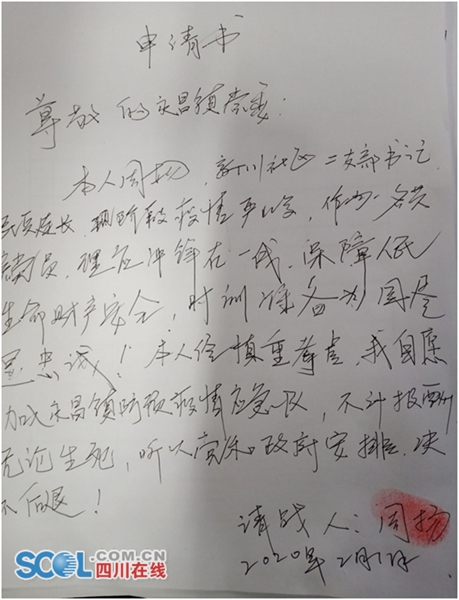 申请书
尊敬的永昌镇党委：
本人周扬，新川社区二支部书记
现阶段疫情严峻，作为一名共
党员，理应冲锋在一线，保障人民
生命财产安全，时刻准备为国尽
忠诚！本人经慎重考虑，我自愿
加入永昌镇防预疫情应急队，不计报酬
无论生死，听从党和政府安排，决
不后退！
请战人：周扬
2020年2月1日
SCOL.COM.CN
四川在线